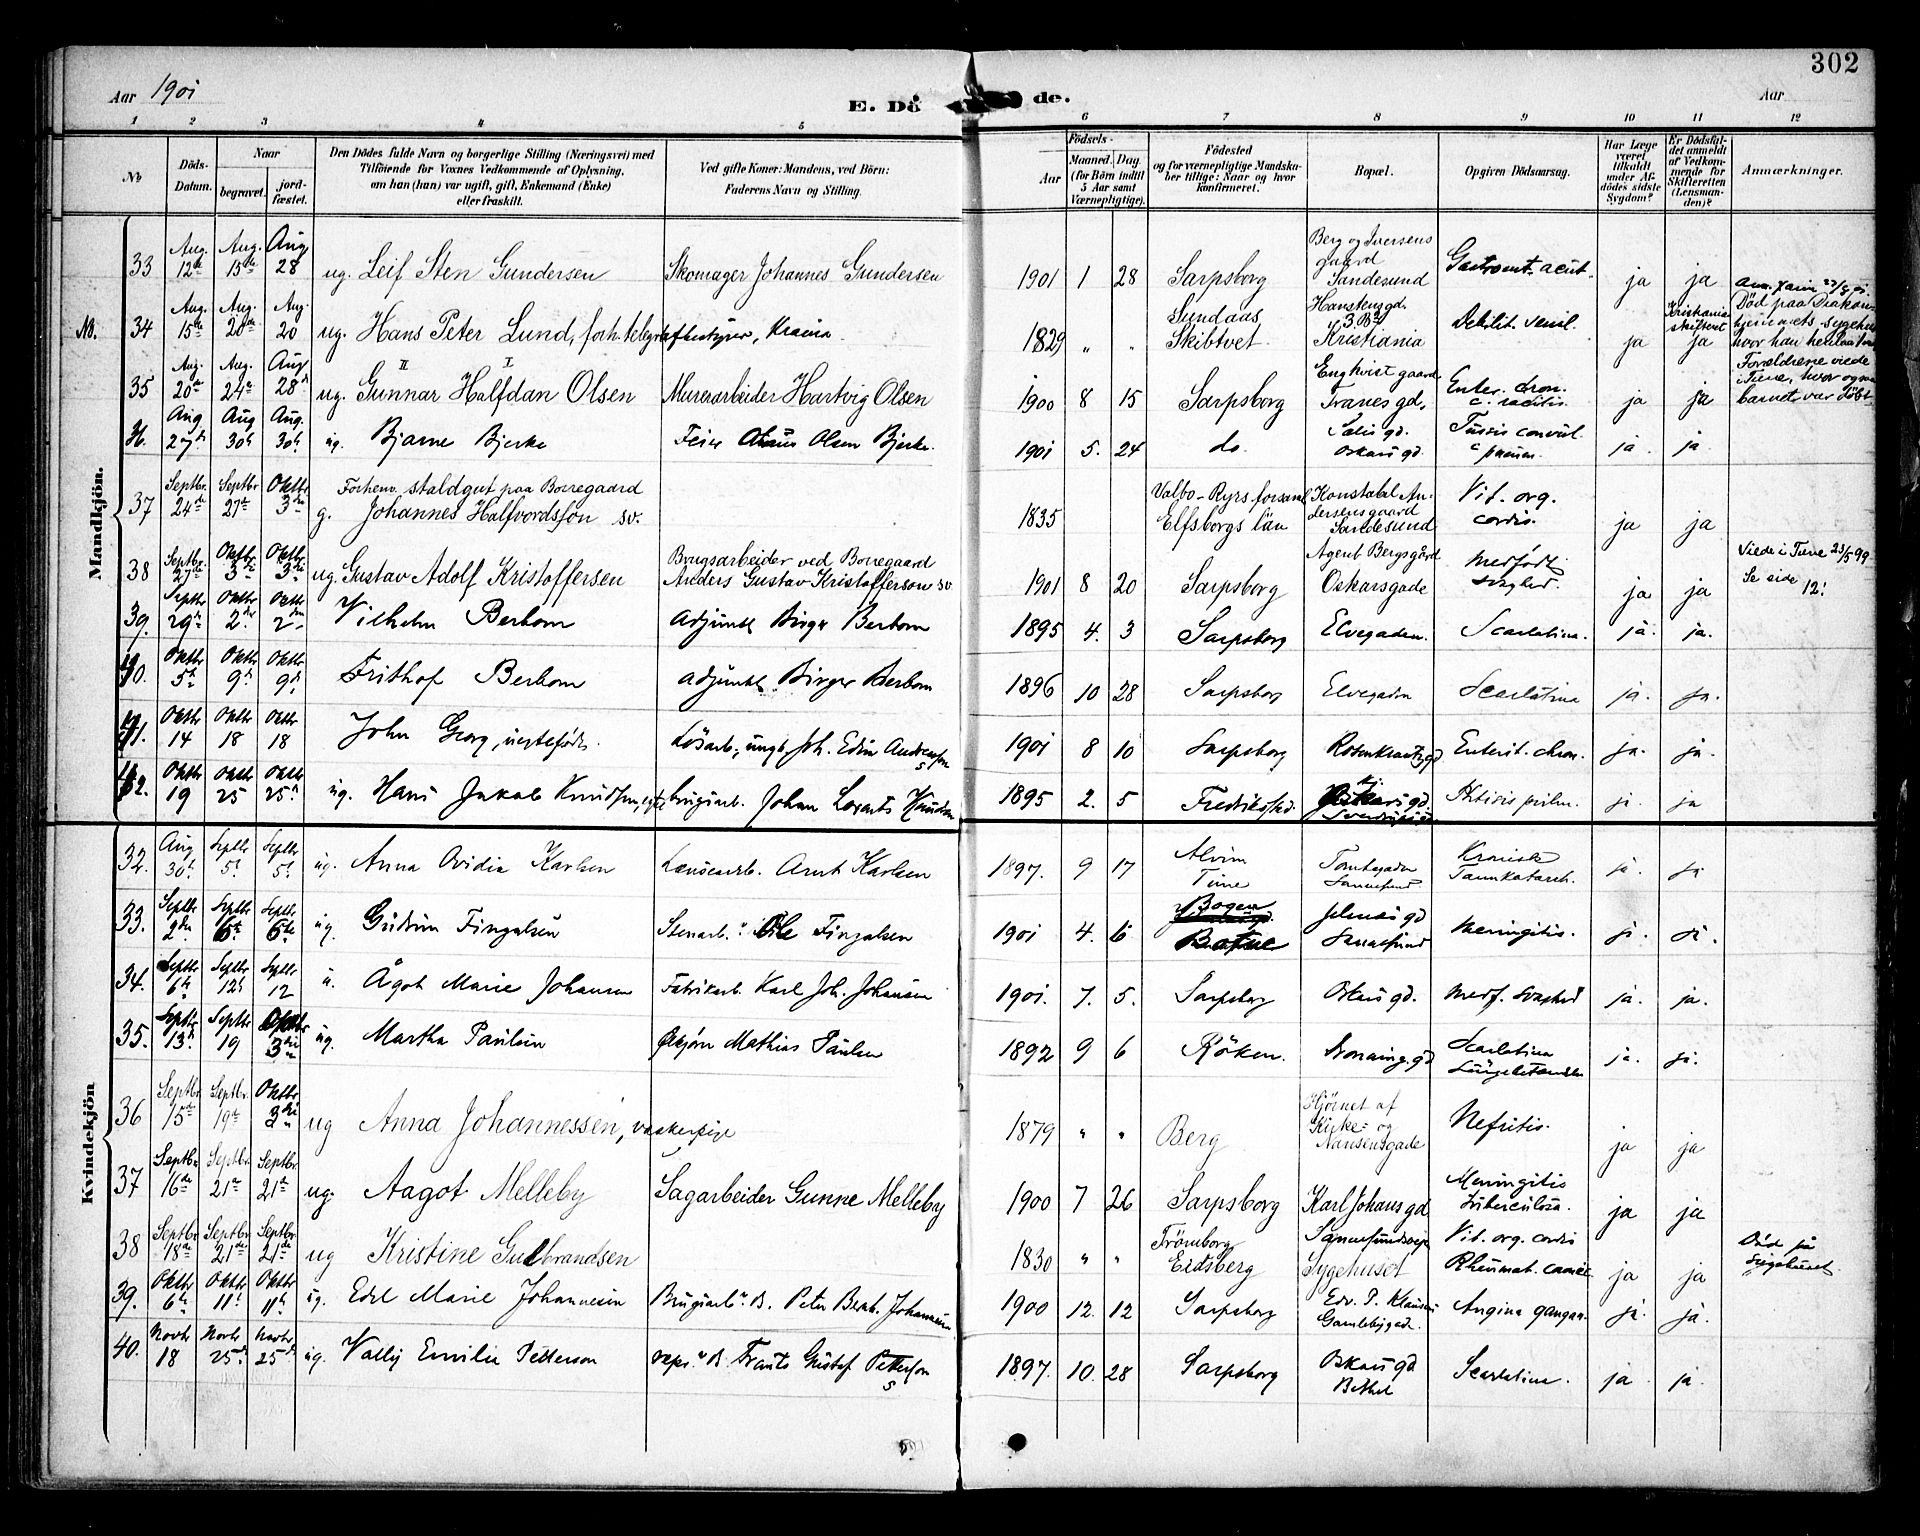 302
Aar 1901 E. Dö de. Aar
1 2 3 4 5 6 7 8 9 10 11 12
No
Döds-Datum.
Naar
begravet.
jordfæstet.
Den Dödes fulde Navn og borgerlige Stilling (Næringsvei) med
Tilföiende for Voxnes Vedkommende af Oplysning,
om han (han) var ugift, gift, Enkemand (Enke)
eller fraskilt.
Ved gifte Koner: Mandens, ved Börn:
Faderens Navn og Stilling.
Födsels-
Aar
Maaned. Dag.
(for Börn indtil
5 Aar samt
Værnepligtige).
Födested
og for værnepligtige Mandska-
ber tillige: Naar og hvor
konfirmeret.
Bopæl.
Opgiven Dödsaarsag.
Har Læge
været
tilkaldt
under Af-
dödes sidste
Sygdom?
Er Dödsfal-
det anmeldt
af Vedkom-
mende for
Skifteretten
(Lensman-
den)?
Anmærkninger.
Mandkjön.
33 Aug. 12te Aug. 15de Aug 28 ug. Leif Sten Gundersen Skomager Johannes Gundersen 1901 1 28 Sarpsborg Berg og Iversens gaard Sandesund Gastroent. acut. ja ja
NB. 34 Aug. 15de Aug. 20de Aug 20 ug. Hans Peter Lund, forh. telegrafbestyrer, 1829 " " Sundaas Skibtvet Hanstensgd. Kristiania Debilit. senil. ja Kristiania skifteret ja Död paa Diakonhjemmets sygehus hvor han
35 Aug. 20de Aug. 24de Aug 28de ug. Gunnar Halfdan Olsen Murerarbeider Hartvig Olsen 1900 8 15 Sarpsborg Engkvist gaard Tranes gd. Enter. chron. c. racitis. ja ja Forældrene viede i Tune, hvor ogsaa barnet var döbt.
36. Aug 27de Aug 30te Aug. 30te ug. Bjarne Bjerke Feier Olsen Bjerke. 1901 5. 24 do Oskars gd. Tussis convul. c pneum. ja. ja.
37 Septbr. 24de Septbr. 27de Oktbr 3die g. Forhenv. staldgut paa Borregaard Johannes Halfvordsson sv. 1835 Valbo-Ryrs forsaml Elfsborgs län Konstabel Andersensgaard Sandesund Vit. org. cordis. ja ja
38 Septbr. 27de Oktbr 3die Oktbr 3die ug. Gustav Adolf Kristoffersen Brugsarbeider ved Borregaard Anders Gustav Kristofferson sv 1901 8 20 Sarpsborg Agent Bergsgård Oskarsgade Medfödt svaghed. ja ja Viede i Tune 23/5 99 Se side 12!
39. Septbr 29de Oktbr 2den Oktbr 2den Vilhelm Berbom Adjunkt Birger Berbom 1895 4. 3 Sarpsborg Elvegaden. Scarlatina. ja. ja.
40. Oktbr 5te Oktbr 9de Oktbr 9de Frithof Berbom Adjunkt Birger Berbom 1896 10 28 Sarpsborg Elvegaden Scarlatina ja. ja.
41. Oktbr 14 Oktbr 18 Oktbr 18 John Georg, uegtefödt. Lösarb., ungk. Joh. Edin Andreassen 1901 8 10 Sarpsborg Rosenkrantz gd Enterit. chron. ja. ja.
42. Oktbr 19 Oktbr 25 Oktbr 25de ug. Hans Jakob Knudsen, brugsarb. Johan Knudsen 1895 2. 5 Fredrikstad. Ftisis pulm. ja. ja
Kvindekjön
32. Aug 30te Septbr 5te Septbr 5te ug. Anna Ovidia Karlsen Lænsearb. Arnt Karlsen 1897. 9 17 Alvim Tune Tomtegaden Sannesund Kronisk Tarmkatarrh. ja. ja
33. Septbr 2den Septbr 6te Septbr 6te ug. Gudrun Fingalsen Stenarb. Ole Fingalsen 1901 4. 6 Bogen Sannesund Meningitis. ja. ja.
34. Septbr 6te Septbr 12te Septbr 12 u. Ågot Marie Johansen Fabrikarb. Karl Joh. Johansen 1901. 7. 5. Sarpsborg Oskars gd. Medf. svaghed ja. ja.
35. Septbr 13de Septbr 19 Oktbr 3die ug. Martha Paulsen Mathias Paulsen 1892 9 6 Röken. Dronning gd Scarlatina ja. ja.
36 Septbr. 15de Septbr. 19de Oktbr 3die ug Anna Johannessen, vaskerpige 1879 " " Berg Hjörnet af Kirke- og Nansensgade Nefritis. ja ja
37 Septbr 16de Septbr. 21de Septbr. 21de ug. Aagot Melleby Sagarbeider Gunne Melleby 1900 7 26 Sarpsborg Karl Johans gd Meningitis tuberculosa. ja ja
38 Septbr. 18de Septbr. 21de Septbr. 21de ug Kristine Gulbrandsen 1830 " " Trömborg Eidsberg Sannesundsveien Sygehuset Vit. org. cordis Rheumat. ja ja Död på Sygehuset.
39. Oktbr 6te Oktbr 11te Oktbr 11te ug. Edel Marie Johannesen Brugsarb. B. Peter Bernh. Johannesen 1900 12. 12 Sarpsborg Edv. P. Klausen Gamlebygad. Angina gangræn. ja. ja.
40. Novbr 18 Novbr 25de Novbr 25de ug. Vally Emilie Petterson Frants Gustaf Petterson 1897. 10. 28 Sarpsborg Oskars gd Bethel Scarlatina. ja ja.